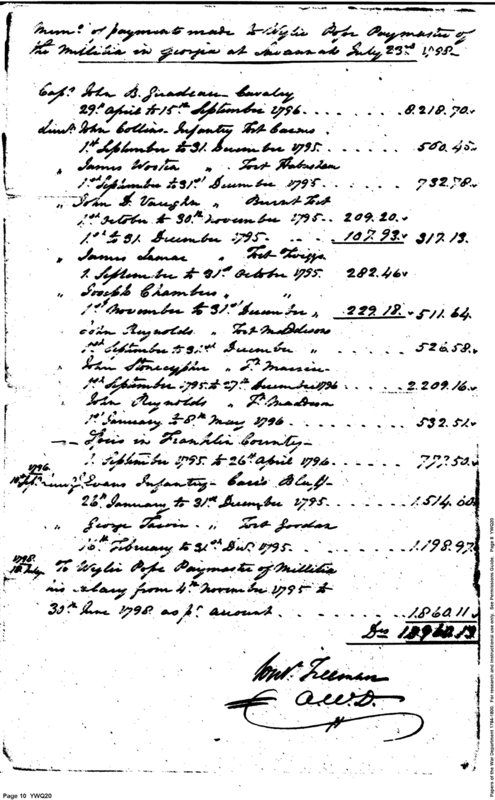 Mem.o of payments made to Wylie Pope Paymaster of
the Millitia in Georgia at Savannah July 23.d 1798
Cap.t John B. Girardeau Cavalry
29.th April to 15.th September 1796 8.218.70
Lieut. John Collins Infantry Fort
1.st September to 31. December 1795 500.45
" James Wooten " Fort
1.st September to 31.st December 1795 732.78
" John D. Vaughn " Burnt Fort
1.st October to 30.th November 1795 209.20
1.st to 31. December 1795 107.93 317.13
" James Lamar " Fort Twiggs
1. September to 31.st October 1795 282.46
" Joseph Chambers " "
1.st November to 31.st December " 229.18 511.64
John Reynolds " Fort
1.st September to 31.st December " 526.58
" John Stonecypher " F.t
1.st September 1795 to 27.th December 1796 2.209.16
" John Reynolds " F.t
1.st January to 8.th May 1796 532.51
in Franklin County
1. September 1795 to 26.th April 1796 777.50
1796
Evans Infantry Bluff
26.th January to 31.st December 1795 1.514.60
" George " Fort
16.th February to 31.st Dec. 1795 1.198.97
1798
To Wylie Pope Paymaster of Millitia
his salary from 4.th November 1795 to
30.th June 1798 as pr. account 1.860.11
Freeman
A.W.D.
Page 10 YWQ20
Papers of the War Department 1784-1800. For research and instructional use only. See Permissions Guide. YWQ20